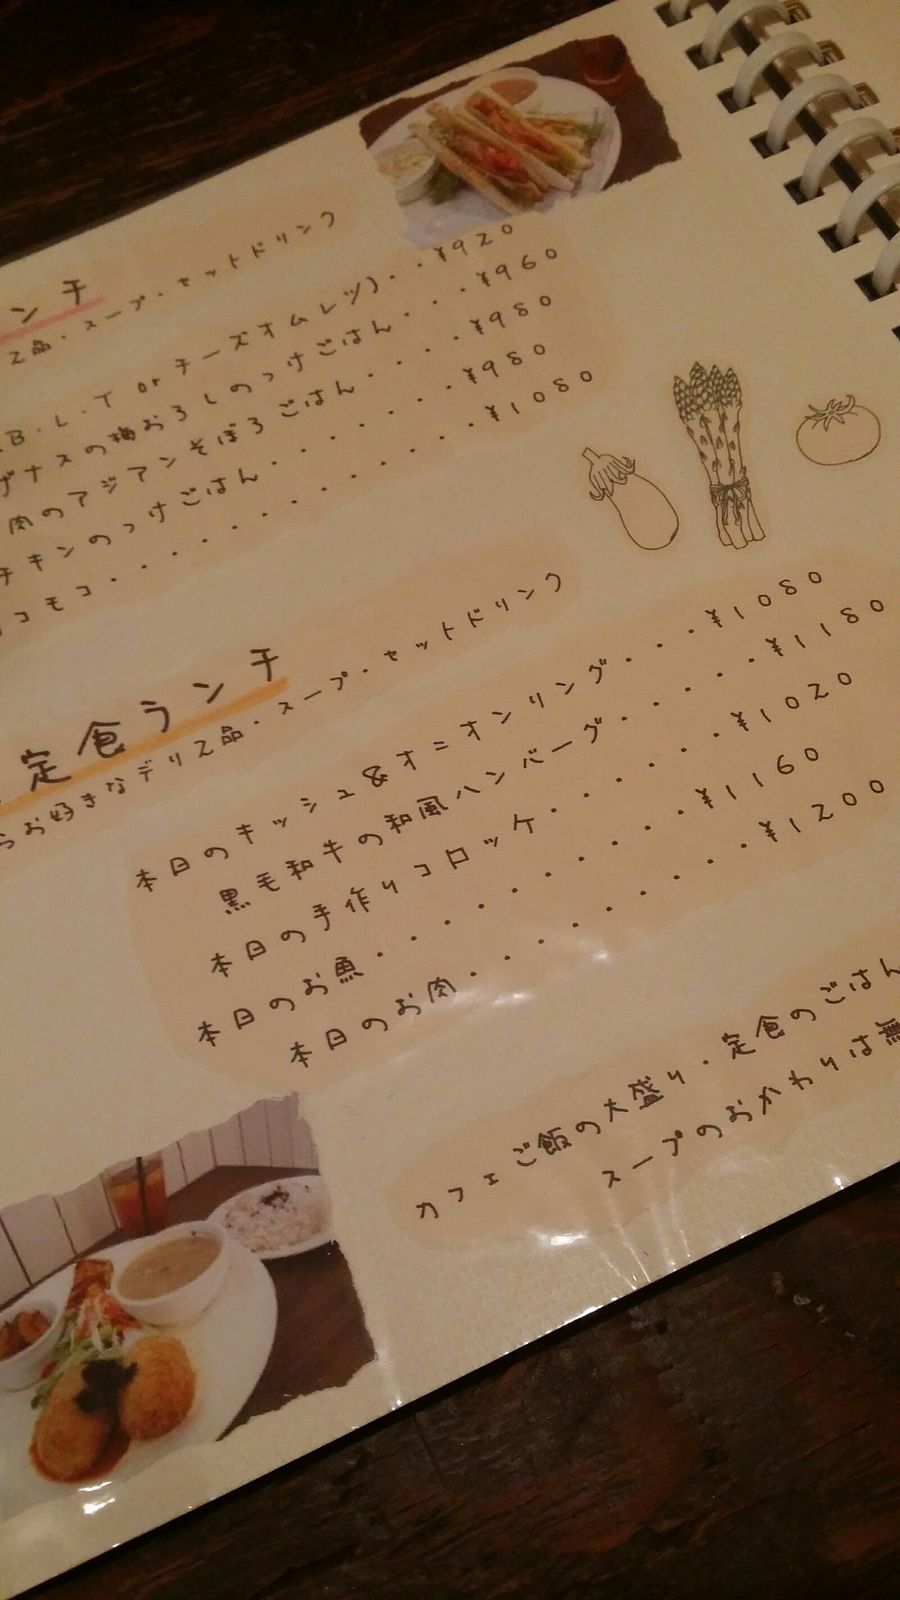 ンチ
2品・スープ・セットドリンク
B・L・T or チーズオムレツ)・・¥920
ナスの梅おろしのつけごはん・・・¥960
肉のアジアンそぼろごはん・・・・¥980
チキンのつけごはん・・・・・・・¥980
コモコ・・・・・・・・・・・¥1080
定食ランチ
らお好きなデリ2品・スープ・セットドリンク
本日のキッシュ&オニオンリング・・・¥1080
黒毛和牛の和風ハンバーグ・・・・・¥1180
本日の手作りコロッケ・・・・・・¥1020
本日のお魚・・・・・・・・・・¥1160
本日のお肉・・・・・・・・・・¥1200
カフェご飯の大盛り・定食のごはん
スープのおかわりは無